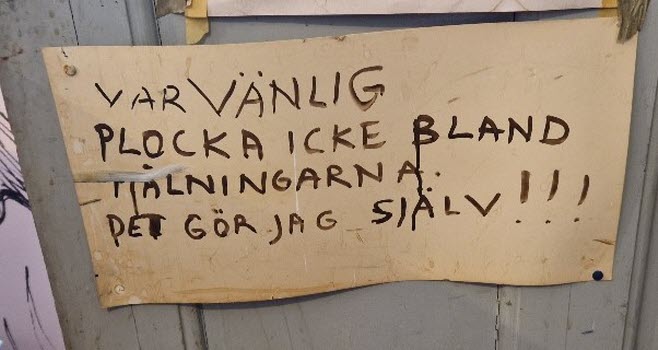 VAR VÄNLIG
PLOCKA ICKE BLAND
MÅLNINGARNA.
DET GÖR JAG SJÄLV!!!